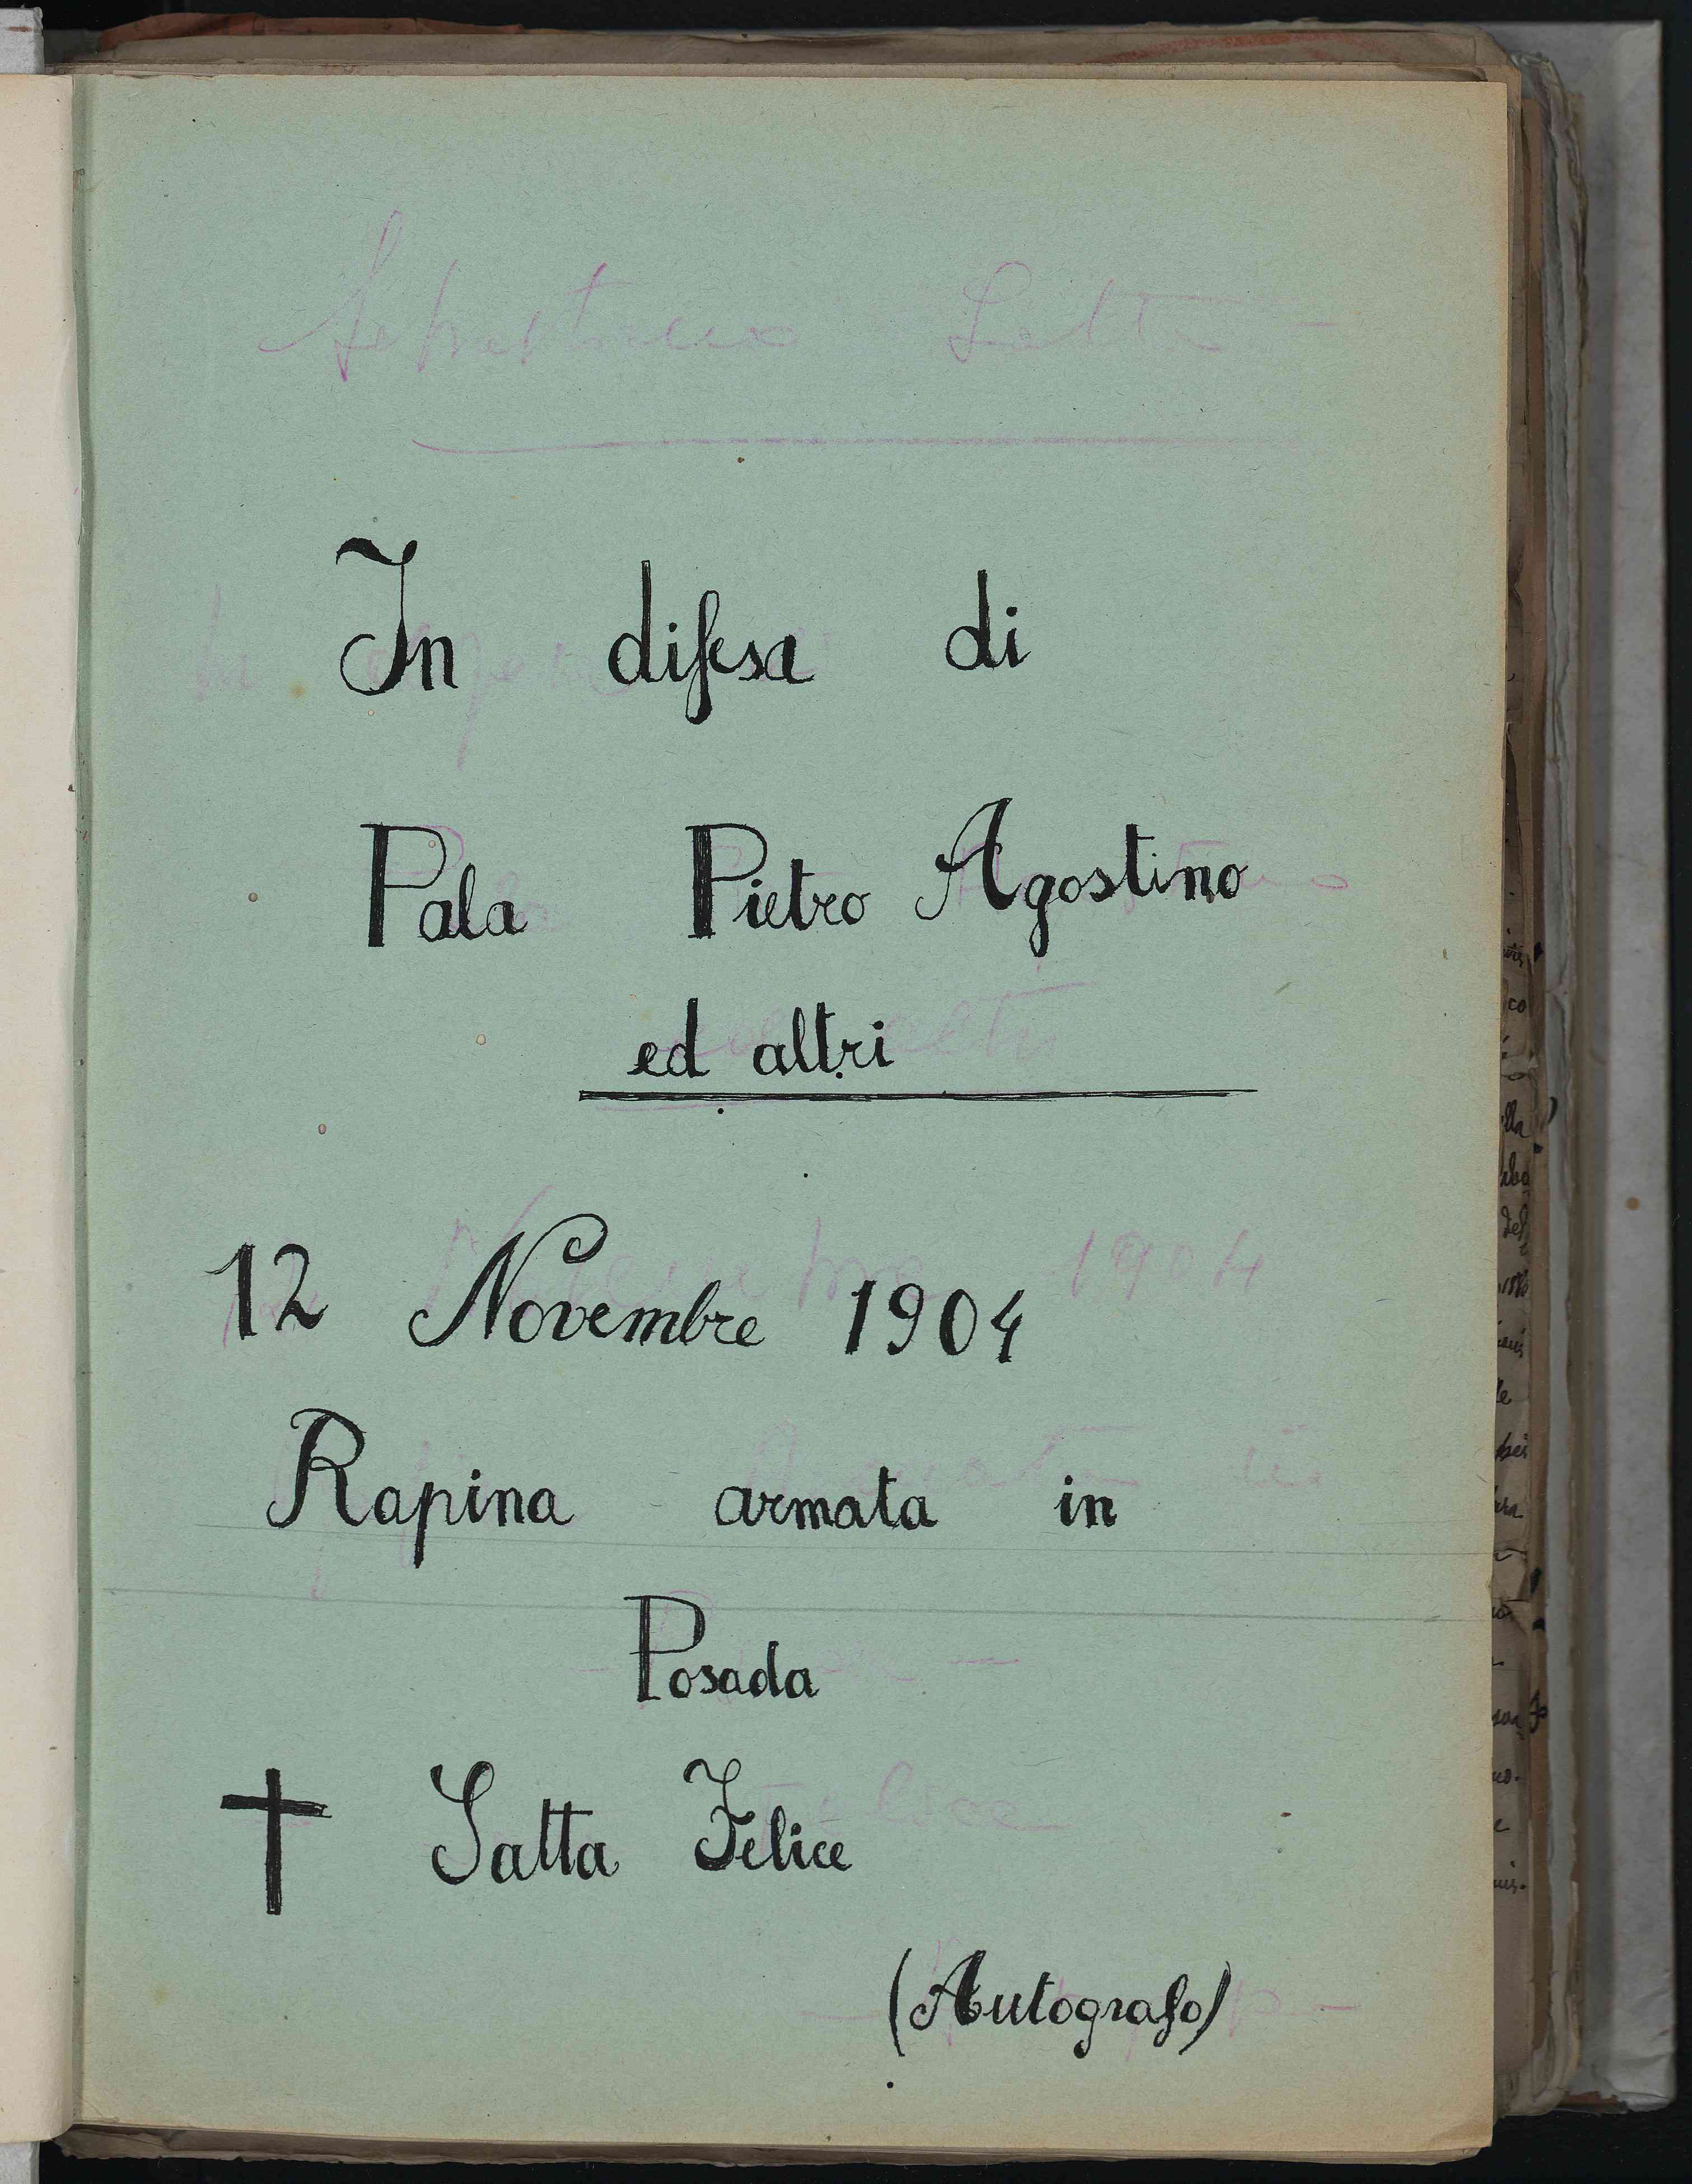 Sebastiano Satta
In difesa di
Pala Pietro Agostino
ed altri
12 Novembre 1904
Rapina armata in
Posada
† Satta Felice
(Autografo)